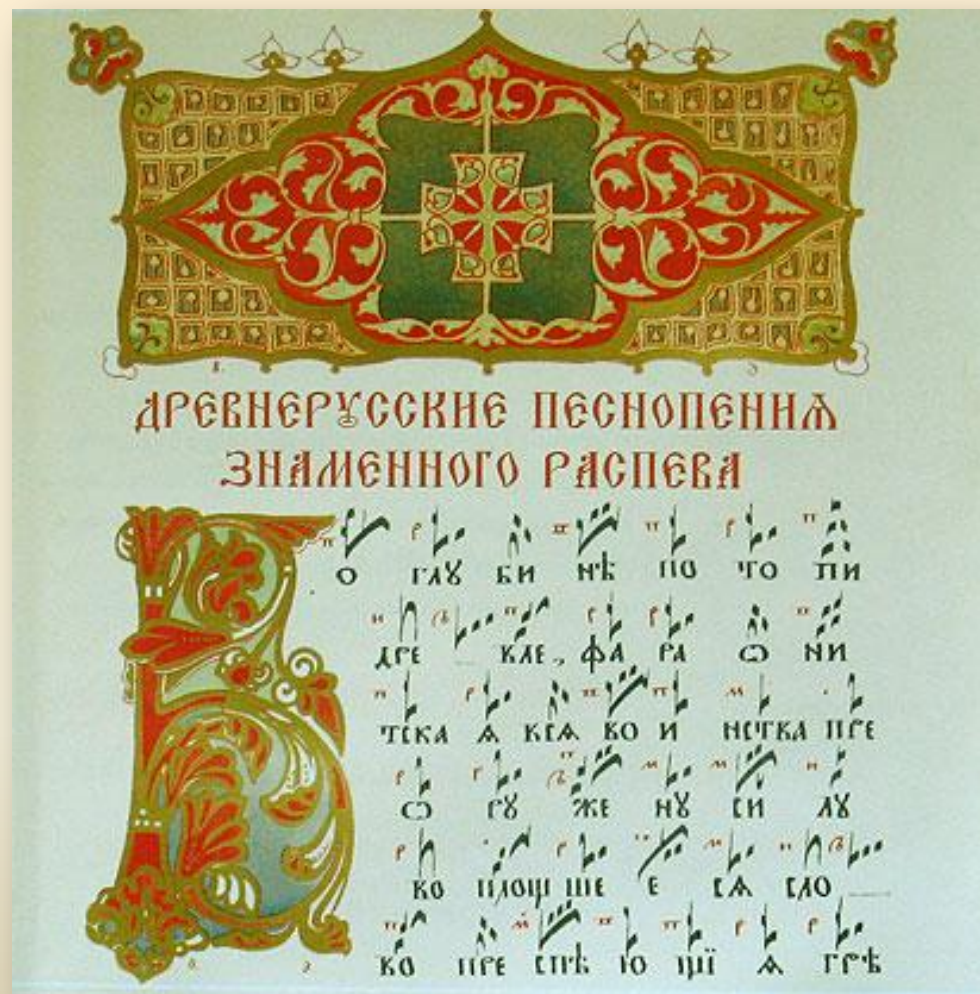 ДРЕВНЕРꙋССКИЕ ПЕСНОПЕНИѦ
ЗНАМЕННОГО РАСПЕВА
В О ГЛꙋ БИ НѢ ПО ТО ПИ
ДРЕ ВЛЕ, ФА РА Ѡ НИ
ТСКА Ѧ ВСѦ ВО И НСТВА ПРЕ
Ѡ Рꙋ ЖЕ Нꙋ СИ Лꙋ
ВО ПЛОЩ ШЕ Е СѦ СЛО
ВО ПРЕ СПѢ Ю ЩЇ Ѧ ГРѢ